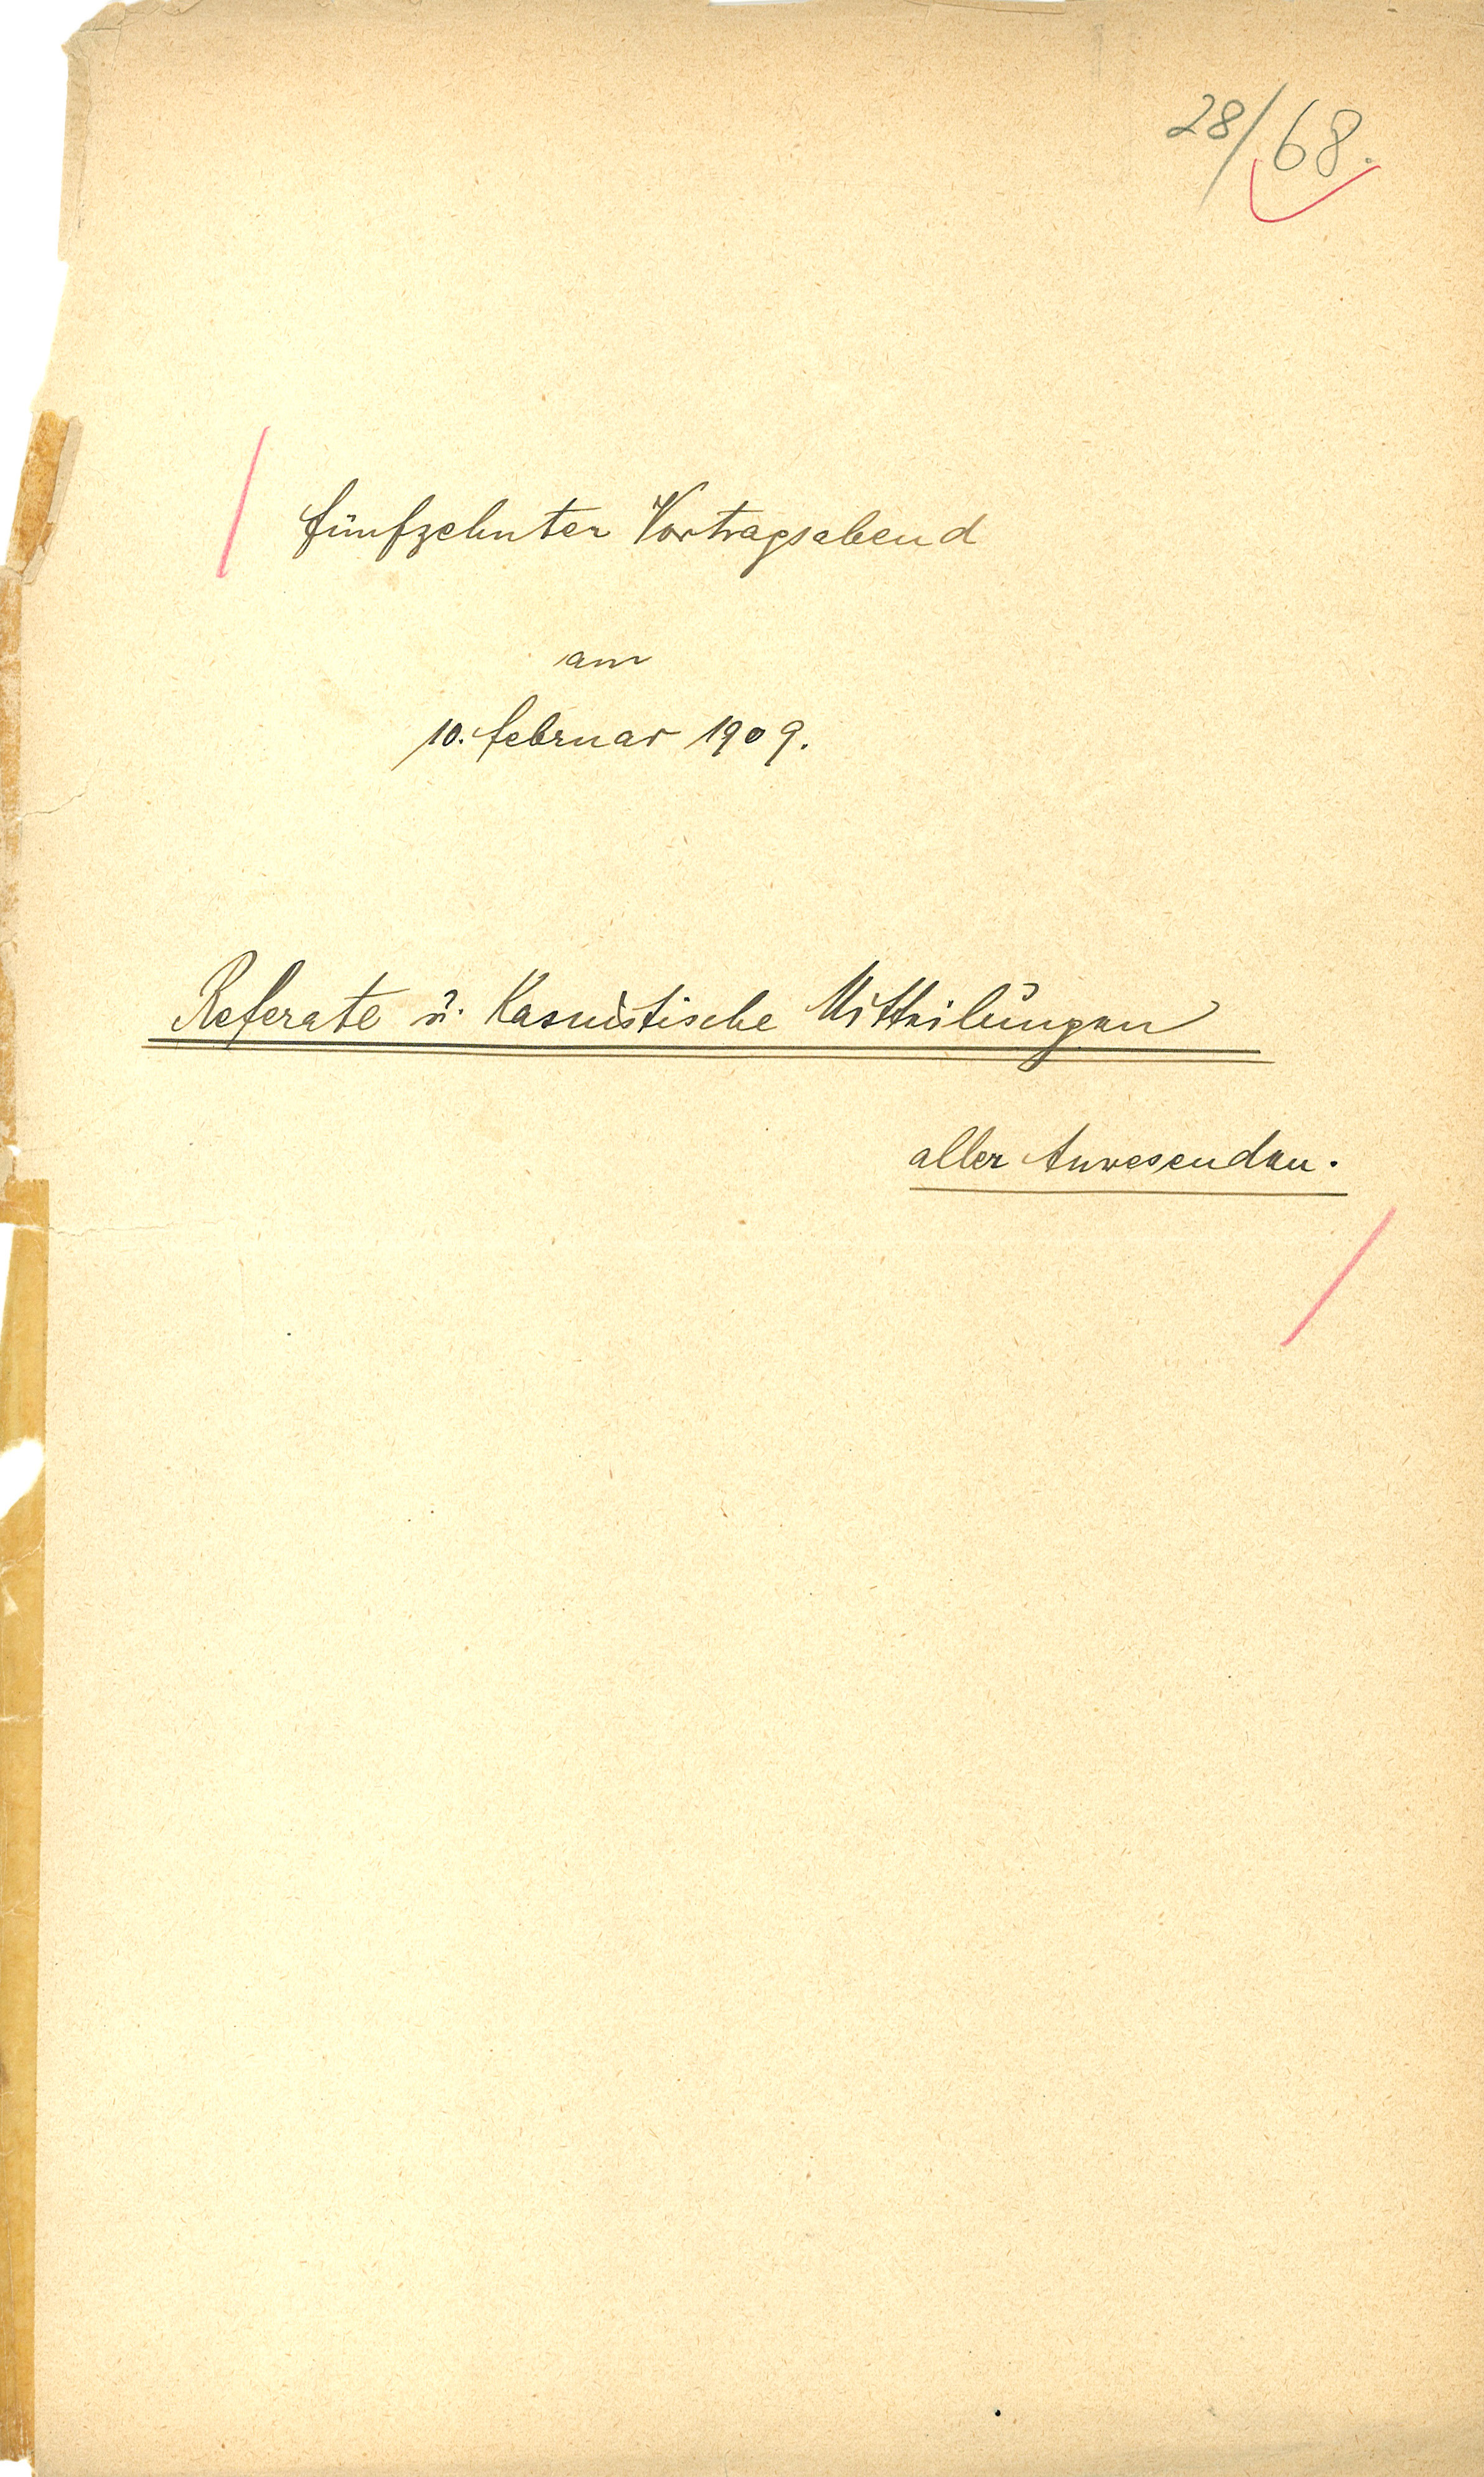 28/68.
fünfzehnter Vortragsabend
am
10. februar 1909.
Referate u. Kasuistische Mittheilungen
aller Anwesenden.